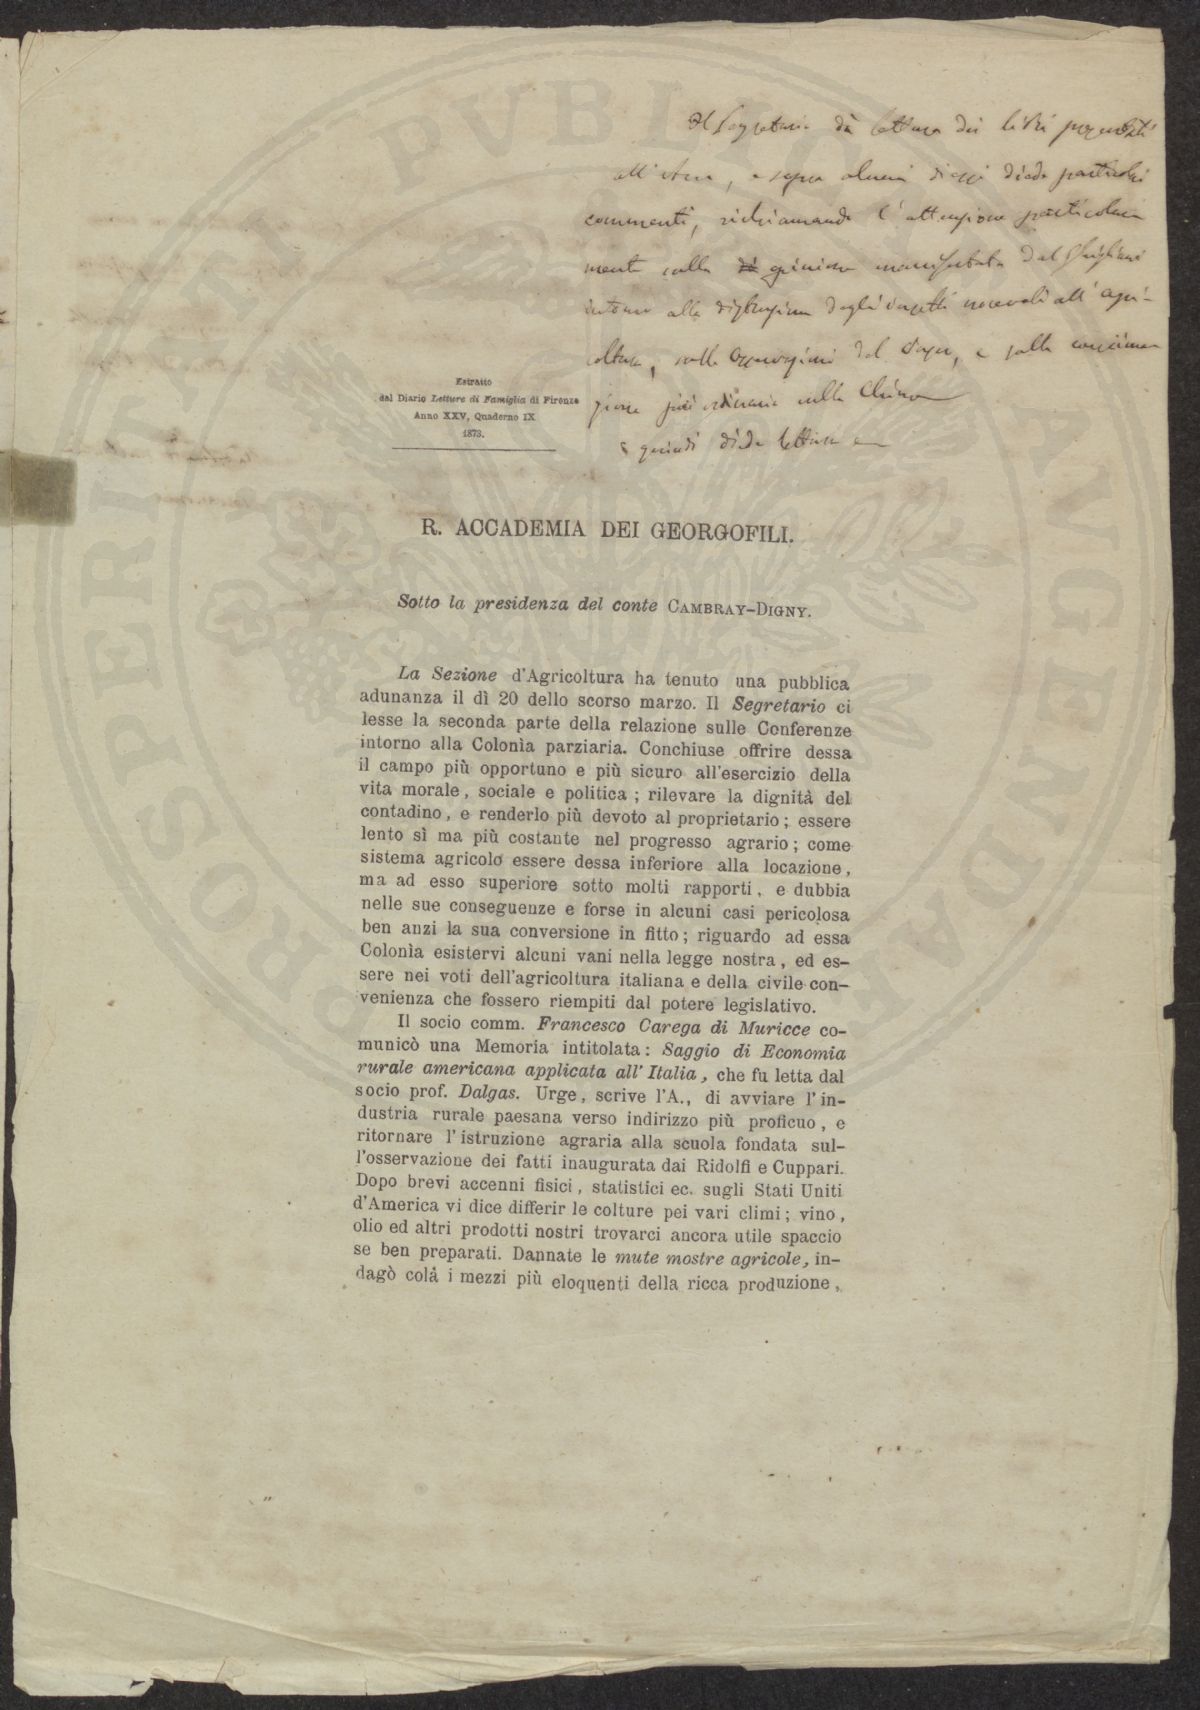 Il Segretario dà lettura dei libri presentati
all'Acca, e sopra alcuni di essi diede particolari
commenti, richiamando l'attenzione particolar
mente sulla opinione manifestata dal
intorno alla distruzione degli insetti nocevoli all'agri-
coltura, sulle osservazioni del e sulla
più ordinaria nella
e quindi diede lettura
Estratto
dal Diario Letture di Famiglia di Firenze
Anno XXV, Quaderno IX
1873.
R. ACCADEMIA DEI GEORGOFILI.
Sotto la presidenza del conte CAMBRAY-DIGNY.
La Sezione d'Agricoltura ha tenuto una pubblica
adunanza il dì 20 dello scorso marzo. Il Segretario ci
lesse la seconda parte della relazione sulle Conferenze
intorno alla Colonìa parziaria. Conchiuse offrire dessa
il campo più opportuno e più sicuro all'esercizio della
vita morale, sociale e politica; rilevare la dignità del
contadino, e renderlo più devoto al proprietario; essere
lento sì ma più costante nel progresso agrario; come
sistema agricolo essere dessa inferiore alla locazione,
ma ad esso superiore sotto molti rapporti, e dubbia
nelle sue conseguenze e forse in alcuni casi pericolosa
ben anzi la sua conversione in fitto; riguardo ad essa
Colonìa esistervi alcuni vani nella legge nostra, ed es-
sere nei voti dell'agricoltura italiana e della civile con-
venienza che fossero riempiti dal potere legislativo.
Il socio comm. Francesco Carega di Muricce co-
municò una Memoria intitolata: Saggio di Economia
rurale americana applicata all'Italia, che fu letta dal
socio prof. Dalgas. Urge, scrive l'A., di avviare l'in-
dustria rurale paesana verso indirizzo più proficuo, e
ritornare l'istruzione agraria alla scuola fondata sul-
l'osservazione dei fatti inaugurata dai Ridolfi e Cuppari.
Dopo brevi accenni fisici, statistici ec. sugli Stati Uniti
d'America vi dice differir le colture pei vari climi; vino,
olio ed altri prodotti nostri trovarci ancora utile spaccio
se ben preparati. Dannate le mute mostre agricole, in-
dagò colà i mezzi più eloquenti della ricca produzione,
PROSPERITATI PVBLICAE AVGENDAE